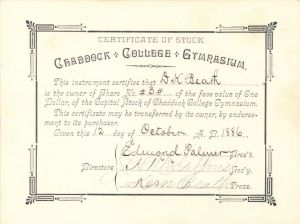 CERTIFICATE OF STOCK
CHADDOCK COLLEGE GYMNASIUM.
This instrument certifies that D. K. Beath
is the owner of Share No. #3# of the face value of One
Dollar, of the Capital Stock of Chaddock College Gymnasium.
This certificate may be transferred by its owner, by endorse-
ment to its purchaser.
Given this 12 day of October A. D. 1886.
Edmond Palmer Pres't.
Directors Sec'y.
Beath Treas.